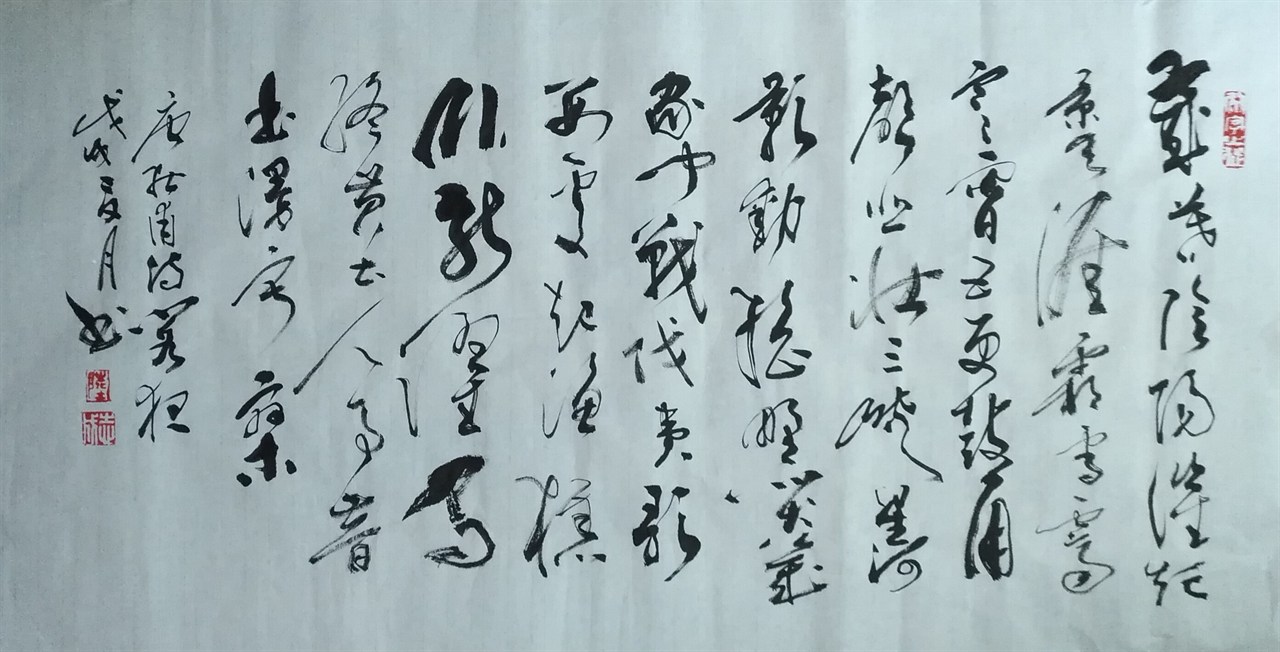 歲暮陰陽催短
景天涯霜雪霽
寒宵五更鼓角
聲悲壯三峽星河
影動搖野哭幾
家聞戰伐夷歌
數處起漁樵
臥龍躍馬
終黄土人事音
書漫寂寥
唐杜甫詩閣夜
戊戌夏月書